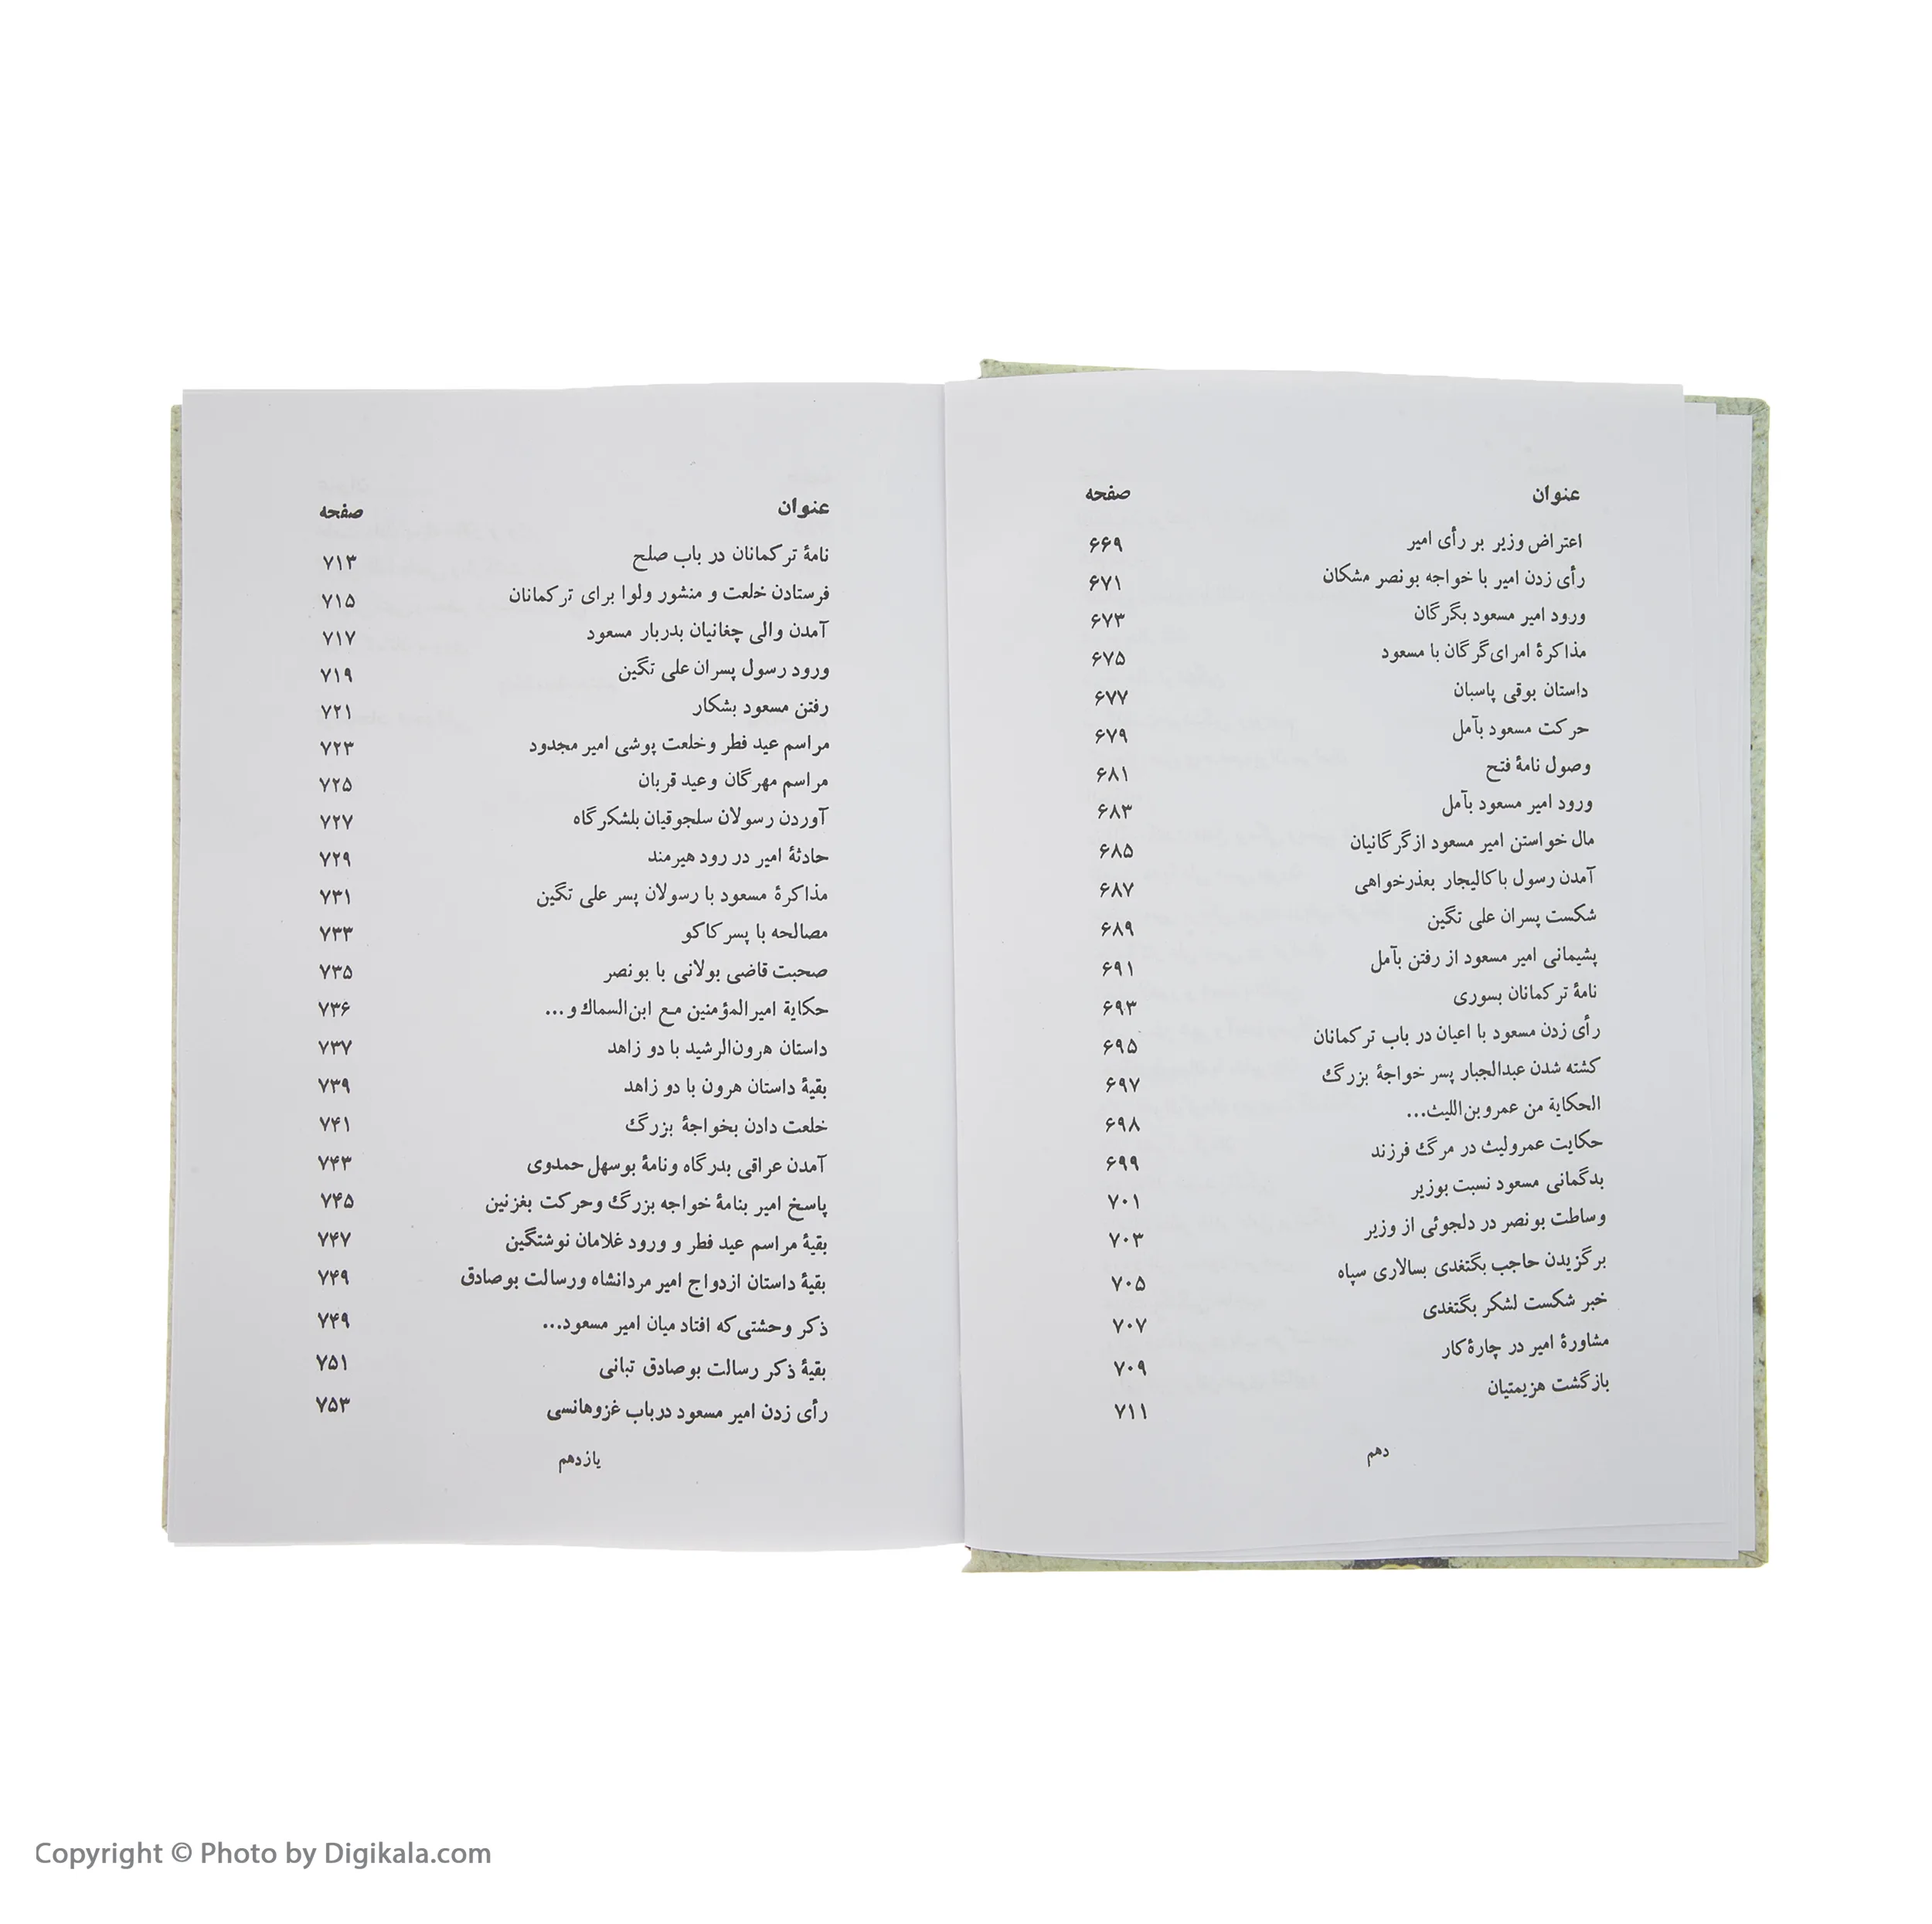 عنوان صفحه
اعتراض وزیر بر رأی امیر ۶۶۹
رأی زدن امیر با خواجه بونصر مشکان ۶۷۱
ورود امیر مسعود بگرگان ۶۷۳
مذاکرهٔ امرای گرگان با مسعود ۶۷۵
داستان بوقی پاسبان ۶۷۷
حرکت مسعود بآمل ۶۷۹
وصول نامهٔ فتح ۶۸۱
ورود امیر مسعود بآمل ۶۸۳
مال خواستن امیر مسعود از گرگانیان ۶۸۵
آمدن رسول باکالیجار بعذرخواهی ۶۸۷
شکست پسران علی تگین ۶۸۹
پشیمانی امیر مسعود از رفتن بآمل ۶۹۱
نامهٔ ترکمانان بسوری ۶۹۳
رأی زدن مسعود با اعیان در باب ترکمانان ۶۹۵
کشته شدن عبدالجبار پسر خواجهٔ بزرگ ۶۹۷
الحکایة من عمروبن‌اللیث... ۶۹۸
حکایت عمرولیث در مرگ فرزند ۶۹۹
بدگمانی مسعود نسبت بوزیر ۷۰۱
وساطت بونصر در دلجوئی از وزیر ۷۰۳
برگزیدن حاجب بگتغدی بسالاری سپاه ۷۰۵
خبر شکست لشکر بگتغدی ۷۰۷
مشاورهٔ امیر در چارهٔ کار ۷۰۹
بازگشت هزیمتیان ۷۱۱
دهم
عنوان صفحه
نامهٔ ترکمانان در باب صلح ۷۱۳
فرستادن خلعت و منشور ولوا برای ترکمانان ۷۱۵
آمدن والی چغانیان بدربار مسعود ۷۱۷
ورود رسول پسران علی تگین ۷۱۹
رفتن مسعود بشکار ۷۲۱
مراسم عید فطر وخلعت پوشی امیر مجدود ۷۲۳
مراسم مهرگان وعید قربان ۷۲۵
آوردن رسولان سلجوقیان بلشکرگاه ۷۲۷
حادثهٔ امیر در رود هیرمند ۷۲۹
مذاکرهٔ مسعود با رسولان پسر علی تگین ۷۳۱
مصالحه با پسر کاکو ۷۳۳
صحبت قاضی بولانی با بونصر ۷۳۵
حکایة امیرالمؤمنین مع ابن‌السماک و... ۷۳۶
داستان هرون‌الرشید با دو زاهد ۷۳۷
بقیهٔ داستان هرون با دو زاهد ۷۳۹
خلعت دادن بخواجهٔ بزرگ ۷۴۱
آمدن عراقی بدرگاه ونامهٔ بوسهل حمدوی ۷۴۳
پاسخ امیر بنامهٔ خواجه بزرگ وحرکت بغزنین ۷۴۵
بقیهٔ مراسم عید فطر و ورود غلامان نوشتگین ۷۴۷
بقیهٔ داستان ازدواج امیر مردانشاه ورسالت بوصادق ۷۴۹
ذکر وحشتی که افتاد میان امیر مسعود... ۷۴۹
بقیهٔ ذکر رسالت بوصادق تبانی ۷۵۱
رأی زدن امیر مسعود درباب غزوهانسی ۷۵۳
یازدهم
Copyright © Photo by Digikala.com